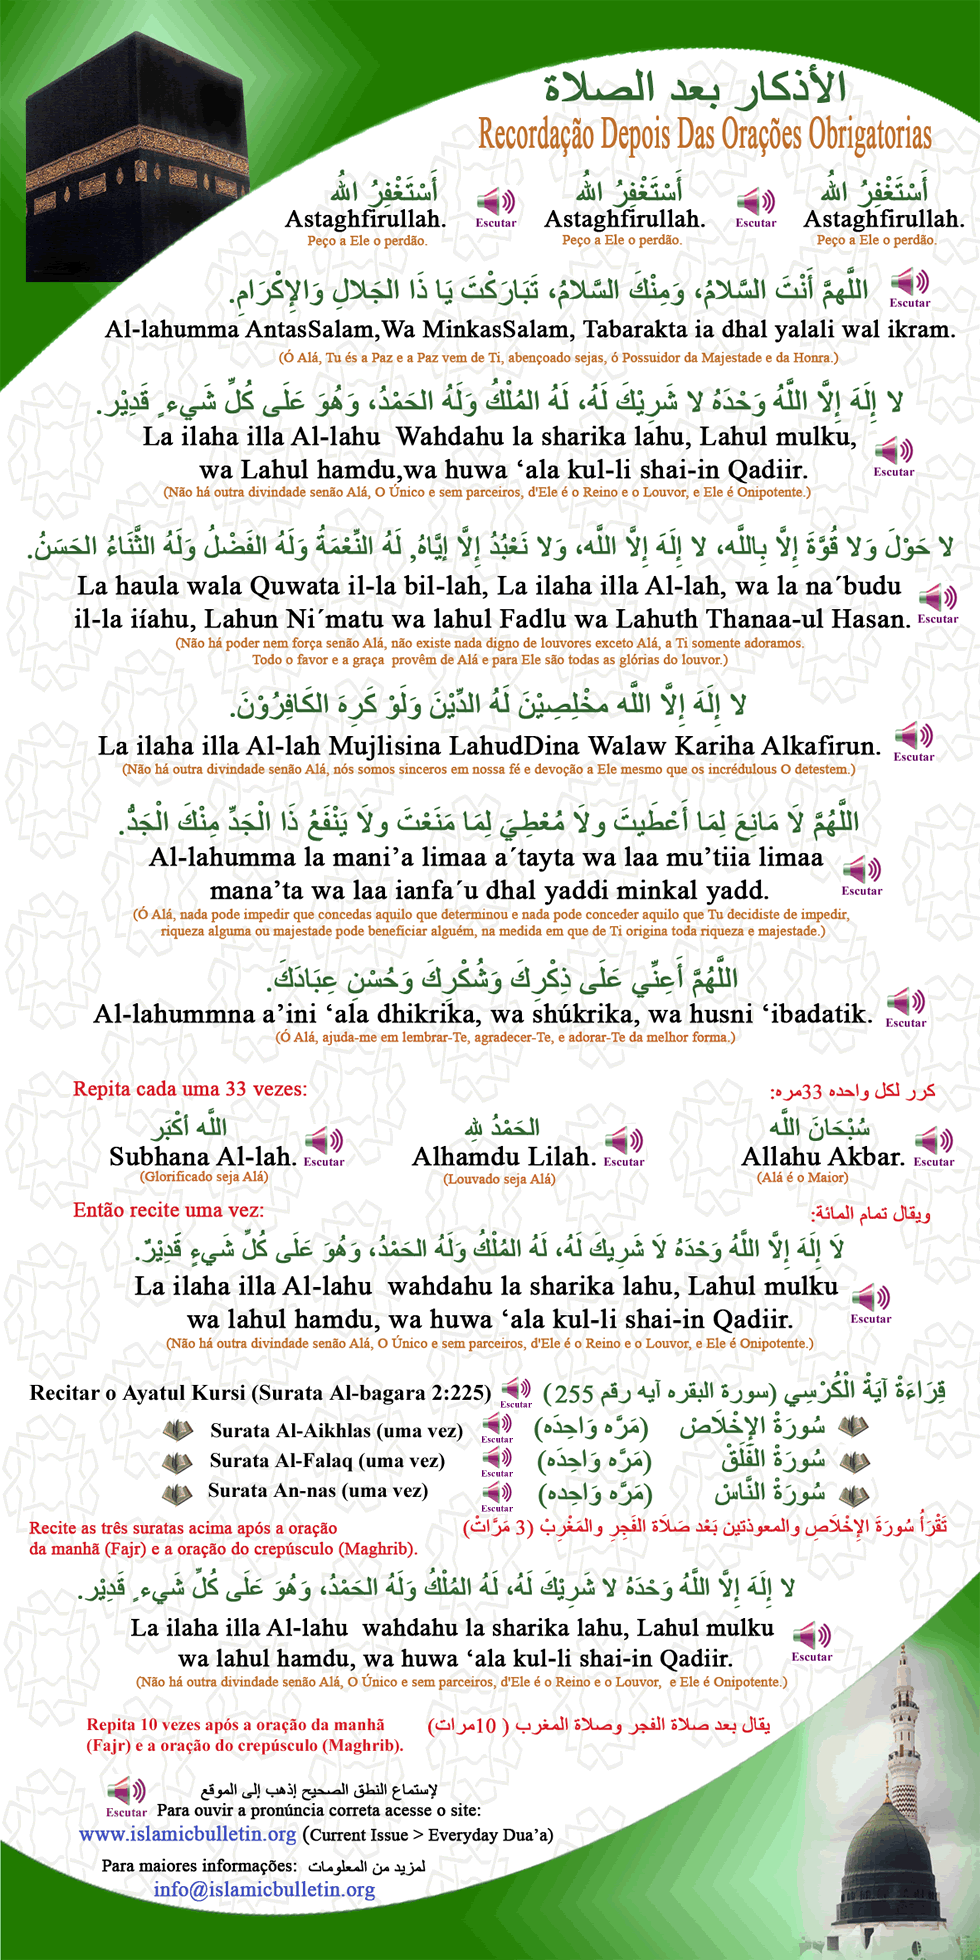 الأذكار بعد الصلاة
Recordação Depois Das Orações Obrigatorias
أَسْتَغْفِرُ اللهُ أَسْتَغْفِرُ اللهُ أَسْتَغْفِرُ اللهُ
Astaghfirullah. Escutar Astaghfirullah. Escutar Astaghfirullah.
Peço a Ele o perdão. Peço a Ele o perdão. Peço a Ele o perdão.
اللَّهمَّ أَنْتَ السَّلامُ، وَمِنْكَ السَّلامُ، تَبَارَكْتَ يَا ذَا الجَلالِ وَالإِكْرَامِ.
Escutar
Al-lahumma AntasSalam,Wa MinkasSalam, Tabarakta ia dhal yalali wal ikram.
(Ó Alá, Tu és a Paz e a Paz vem de Ti, abençoado sejas, ó Possuidor da Majestade e da Honra.)
لا إِلَهَ إِلَّا اللَّهُ وَحْدَهُ لا شَرِيْكَ لَهُ، لَهُ المُلْكُ وَلَهُ الحَمْدُ، وَهُوَ عَلَى كُلِّ شَيءٍ قَدِيْر.
La ilaha illa Al-lahu Wahdahu la sharika lahu, Lahul mulku,
wa Lahul hamdu,wa huwa ‘ala kul-li shai-in Qadiir.
Escutar
(Não há outra divindade senão Alá, O Único e sem parceiros, d'Ele é o Reino e o Louvor, e Ele é Onipotente.)
لا حَوْلَ وَلا قُوَّةَ إِلَّا بِاللَّه، لا إِلَهَ إِلَّا اللَّه، وَلا نَعْبُدُ إِلَّا إِيَّاهُ, لَهُ النِّعْمَةُ وَلَهُ الفَضْلُ وَلَهُ الثَّنَاءُ الحَسَنُ.
La haula wala Quwata il-la bil-lah, La ilaha illa Al-lah, wa la na´budu
il-la iíahu, Lahun Ni´matu wa lahul Fadlu wa Lahuth Thanaa-ul Hasan.
Escutar
(Não há poder nem força senão Alá, não existe nada digno de louvores exceto Alá, a Ti somente adoramos.
Todo o favor e a graça provêm de Alá e para Ele são todas as glórias do louvor.)
لا إِلَهَ إِلَّا اللَّه مخْلِصِيْنَ لَهُ الدِّيْنَ وَلَوْ كَرِهَ الكَافِرُوْنَ.
La ilaha illa Al-lah Mujlisina LahudDina Walaw Kariha Alkafirun.
Escutar
(Não há outra divindade senão Alá, nós somos sinceros em nossa fé e devoção a Ele mesmo que os incrédulous O detestem.)
اللَّهُمَّ لَا مَانِعَ لِمَا أَعْطَيتَ ولَا مُعْطِيَ لِمَا مَنَعْتَ ولَا يَنْفَعُ ذَا الْجَدِّ مِنْكَ الْجَدُّ.
Al-lahumma la mani’a limaa a´tayta wa laa mu’tiia limaa
mana’ta wa laa ianfa´u dhal yaddi minkal yadd.
Escutar
(Ó Alá, nada pode impedir que concedas aquilo que determinou e nada pode conceder aquilo que Tu decidiste de impedir,
riqueza alguma ou majestade pode beneficiar alguém, na medida em que de Ti origina toda riqueza e majestade.)
اللَّهُمَّ أَعِنِّي عَلَى ذِكْرِكَ وَشُكْرِكَ وَحُسْنِ عِبَادَكَ.
Al-lahummna a’ini ‘ala dhikrika, wa shúkrika, wa husni ‘ibadatik.
Escutar
(Ó Alá, ajuda-me em lembrar-Te, agradecer-Te, e adorar-Te da melhor forma.)
Repita cada uma 33 vezes: كرر لكل واحده 33مره:
اللَّه أكْبَر الحَمْدُ لِلهِ سُبْحَانَ اللَّه
Subhana Al-lah. Escutar Alhamdu Lilah. Escutar Allahu Akbar. Escutar
(Glorificado seja Alá) (Louvado seja Alá) (Alá é o Maior)
Então recite uma vez: ويقال تمام المائة:
لَا إِلَهَ إِلَّا اللَّهُ وَحْدَهُ لَا شَرِيكَ لَهُ، لَهُ المُلْكُ وَلَهُ الحَمْدُ، وَهُوَ عَلَى كُلِّ شَيءٍ قَدِيْرٌ.
La ilaha illa Al-lahu wahdahu la sharika lahu, Lahul mulku
wa lahul hamdu, wa huwa ‘ala kul-li shai-in Qadiir.
Escutar
(Não há outra divindade senão Alá, O Único e sem parceiros, d'Ele é o Reino e o Louvor, e Ele é Onipotente.)
Recitar o Ayatul Kursi (Surata Al-bagara 2:225) Escutar قِرَاءَةْ آيَةْ الْكُرْسِي (سورة البقره آيه رقم 255)
Surata Al-Aikhlas (uma vez) Escutar سُورَةْ الإِخْلَاصْ (مَرَّه وَاحِدَه)
Surata Al-Falaq (uma vez) Escutar سُورَةْ الفَلَقْ (مَرَّه وَاحِدَه)
Surata An-nas (uma vez) Escutar سُورَةْ النَّاسْ (مَرَّه وَاحِده)
Recite as três suratas acima após a oração
da manhã (Fajr) e a oração do crepúsculo (Maghrib).
تَقْرَأُ سُورَةَ الإِخْلَاصِ والمعوذتين بَعْد صَلَاة الفَجِرِ والمَغْرِبْ (3 مَرَّاتْ)
لا إِلَهَ إِلَّا اللَّهُ وَحْدَهُ لا شَرِيْكَ لَهُ، لَهُ المُلْكُ وَلَهُ الحَمْدُ، وَهُوَ عَلَى كُلِّ شَيءٍ قَدِيْر.
La ilaha illa Al-lahu wahdahu la sharika lahu, Lahul mulku
wa lahul hamdu, wa huwa ‘ala kul-li shai-in Qadiir.
Escutar
(Não há outra divindade senão Alá, O Único e sem parceiros, d'Ele é o Reino e o Louvor, e Ele é Onipotente.)
Repita 10 vezes após a oração da manhã
(Fajr) e a oração do crepúsculo (Maghrib).
يقال بعد صلاة الفجر وصلاة المغرب ( 10مرات)
لإستماع النطق الصحيح إذهب إلى الموقع
Escutar Para ouvir a pronúncia correta acesse o site:
www.islamicbulletin.org (Current Issue > Everyday Dua’a)
Para maiores informações: لمزيد من المعلومات
info@islamicbulletin.org